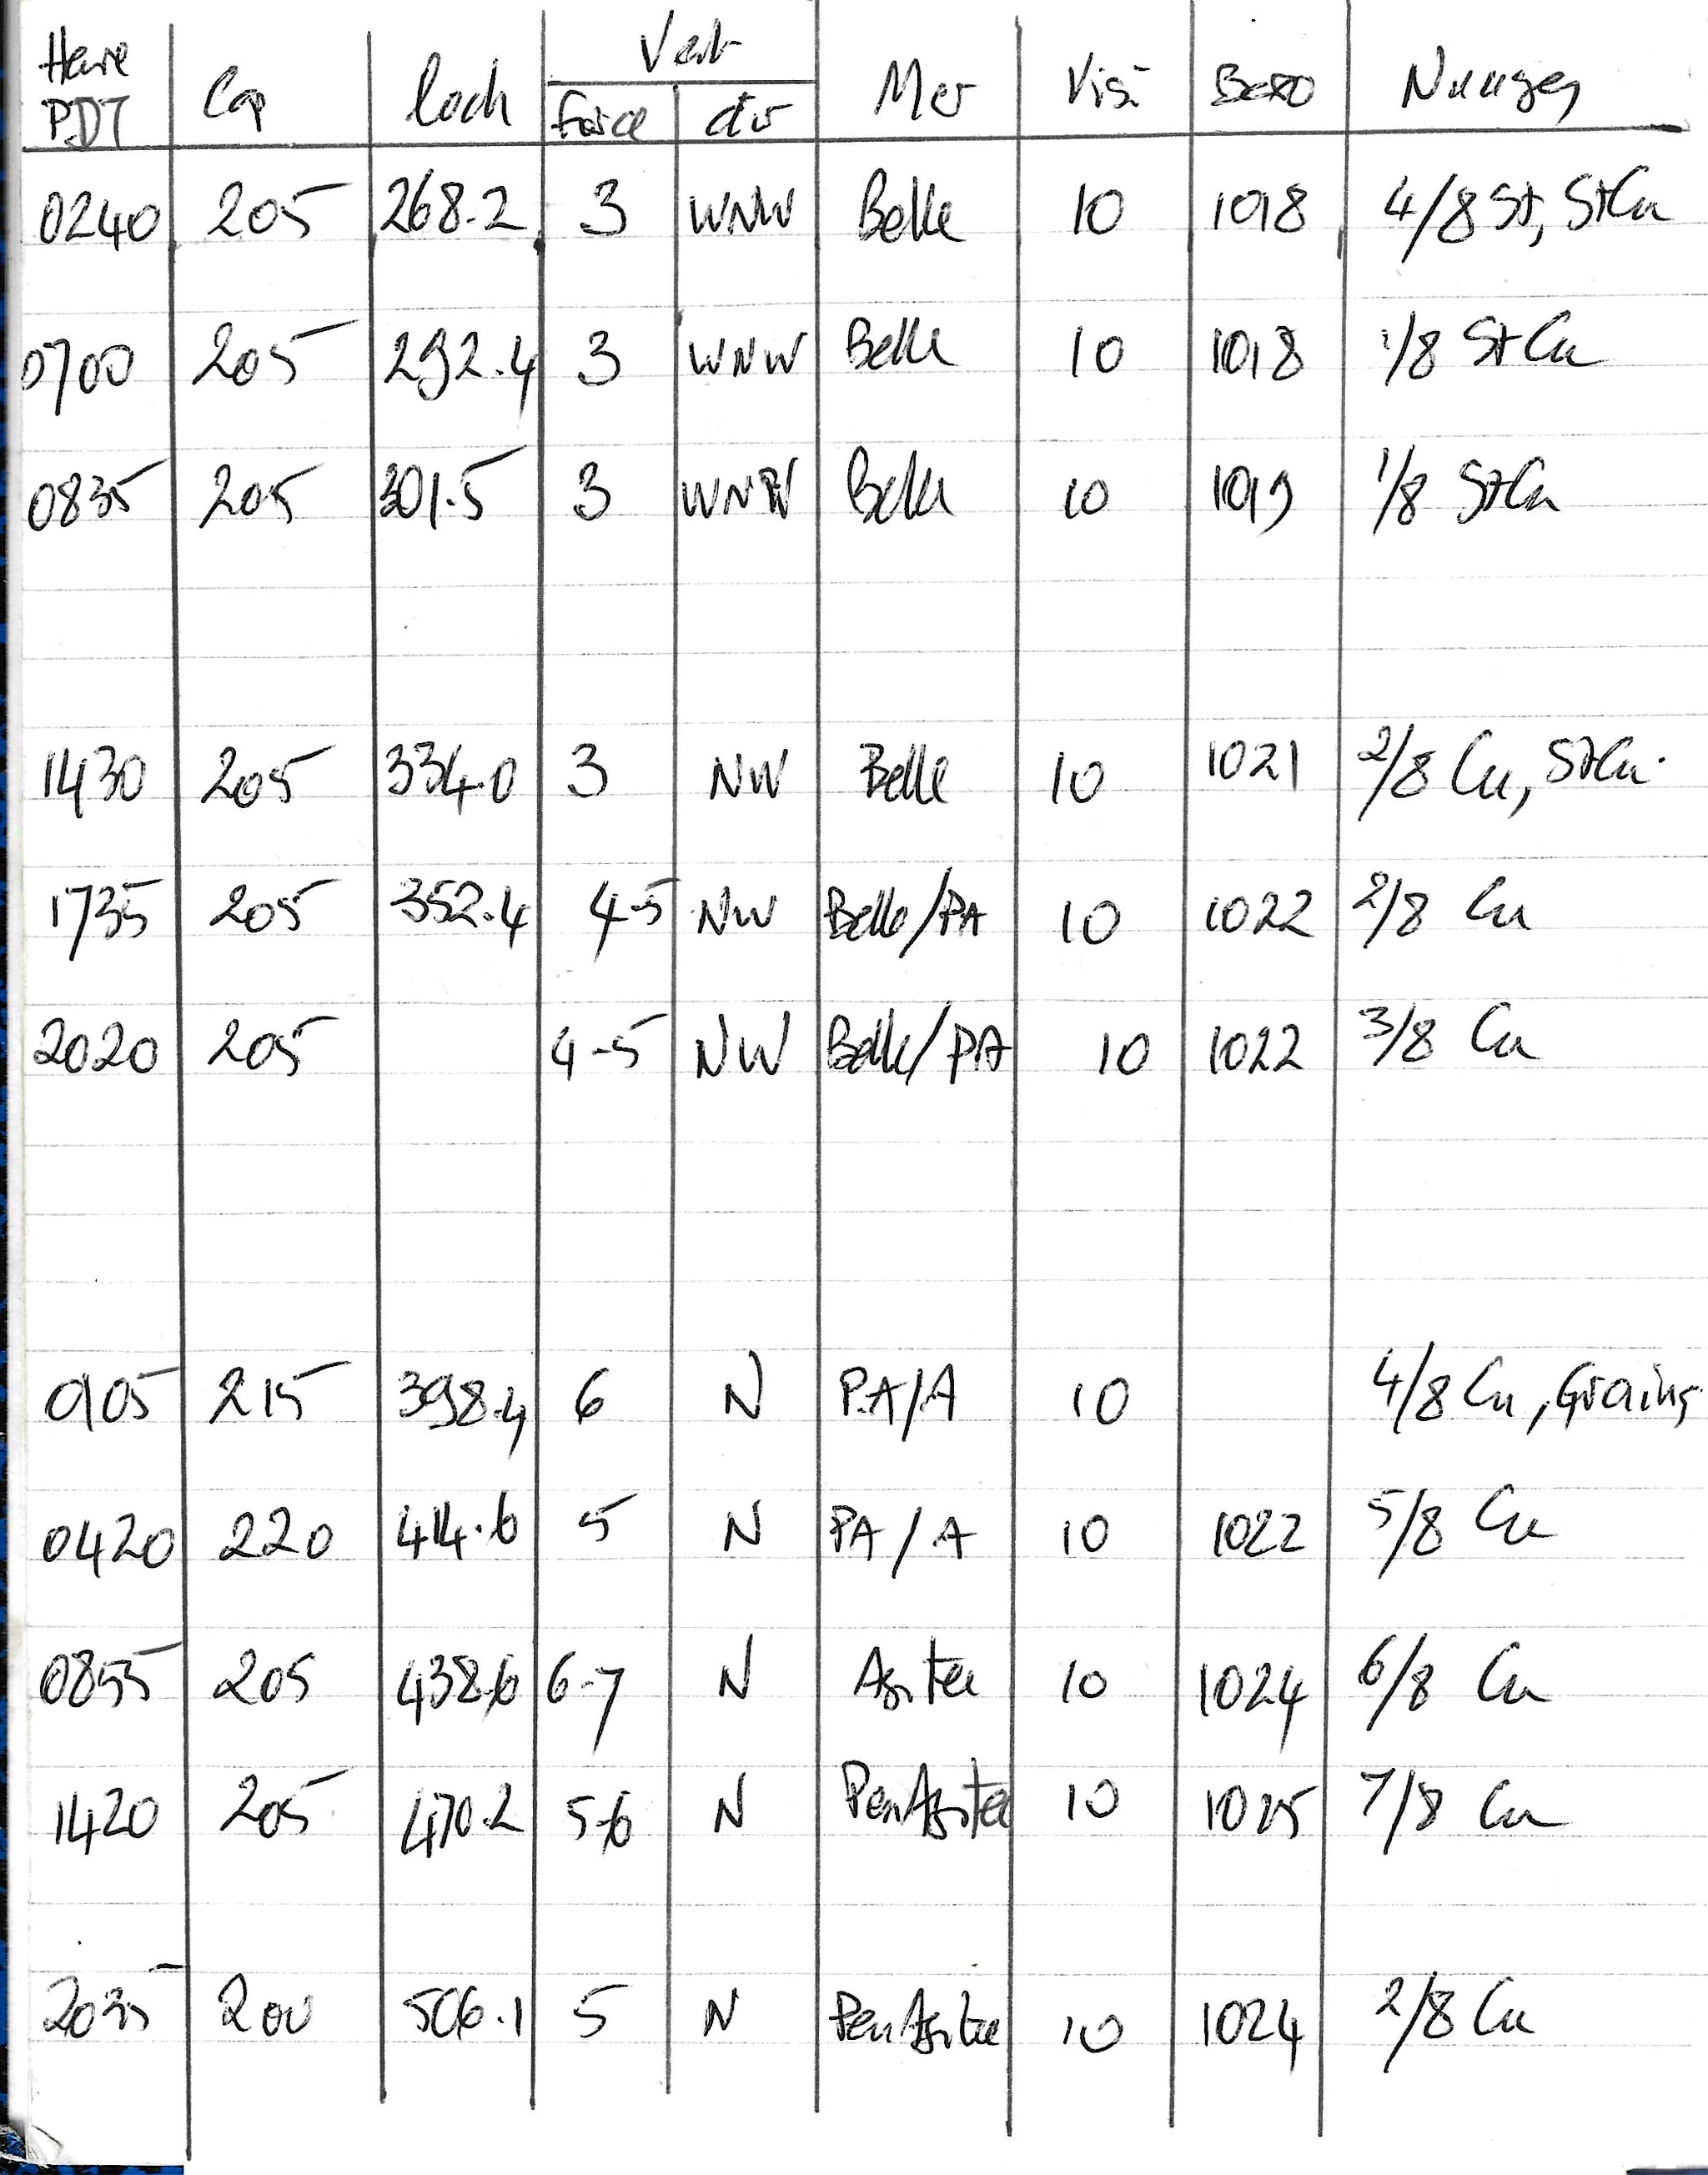 Heure Cap Loch Vent Mer Visi Baro Nuages
PDT force dir
0240 205 268.2 3 WNW Belle 10 1018 4/8 St, StCu
0700 205 292.4 3 WNW Belle 10 1018 1/8 StCu
0835 205 301.5 3 WNW Belle 10 1019 1/8 StCu
1430 205 334.0 3 NW Belle 10 1021 2/8 Cu, StCu.
1735 205 352.4 4-5 NW Belle/PA 10 1022 2/8 Cu
2020 205 4-5 NW Belle/PA 10 1022 3/8 Cu
0105 215 398.4 6 N PA/A 10 4/8 Cu, Grains
0420 220 414.6 5 N PA/A 10 1022 5/8 Cu
0855 205 438.6 6-7 N Agitée 10 1024 6/8 Cu
1420 205 470.2 5-6 N Peu Agitée 10 1025 7/8 Cu
2035 200 506.1 5 N Peu Agitée 10 1024 2/8 Cu